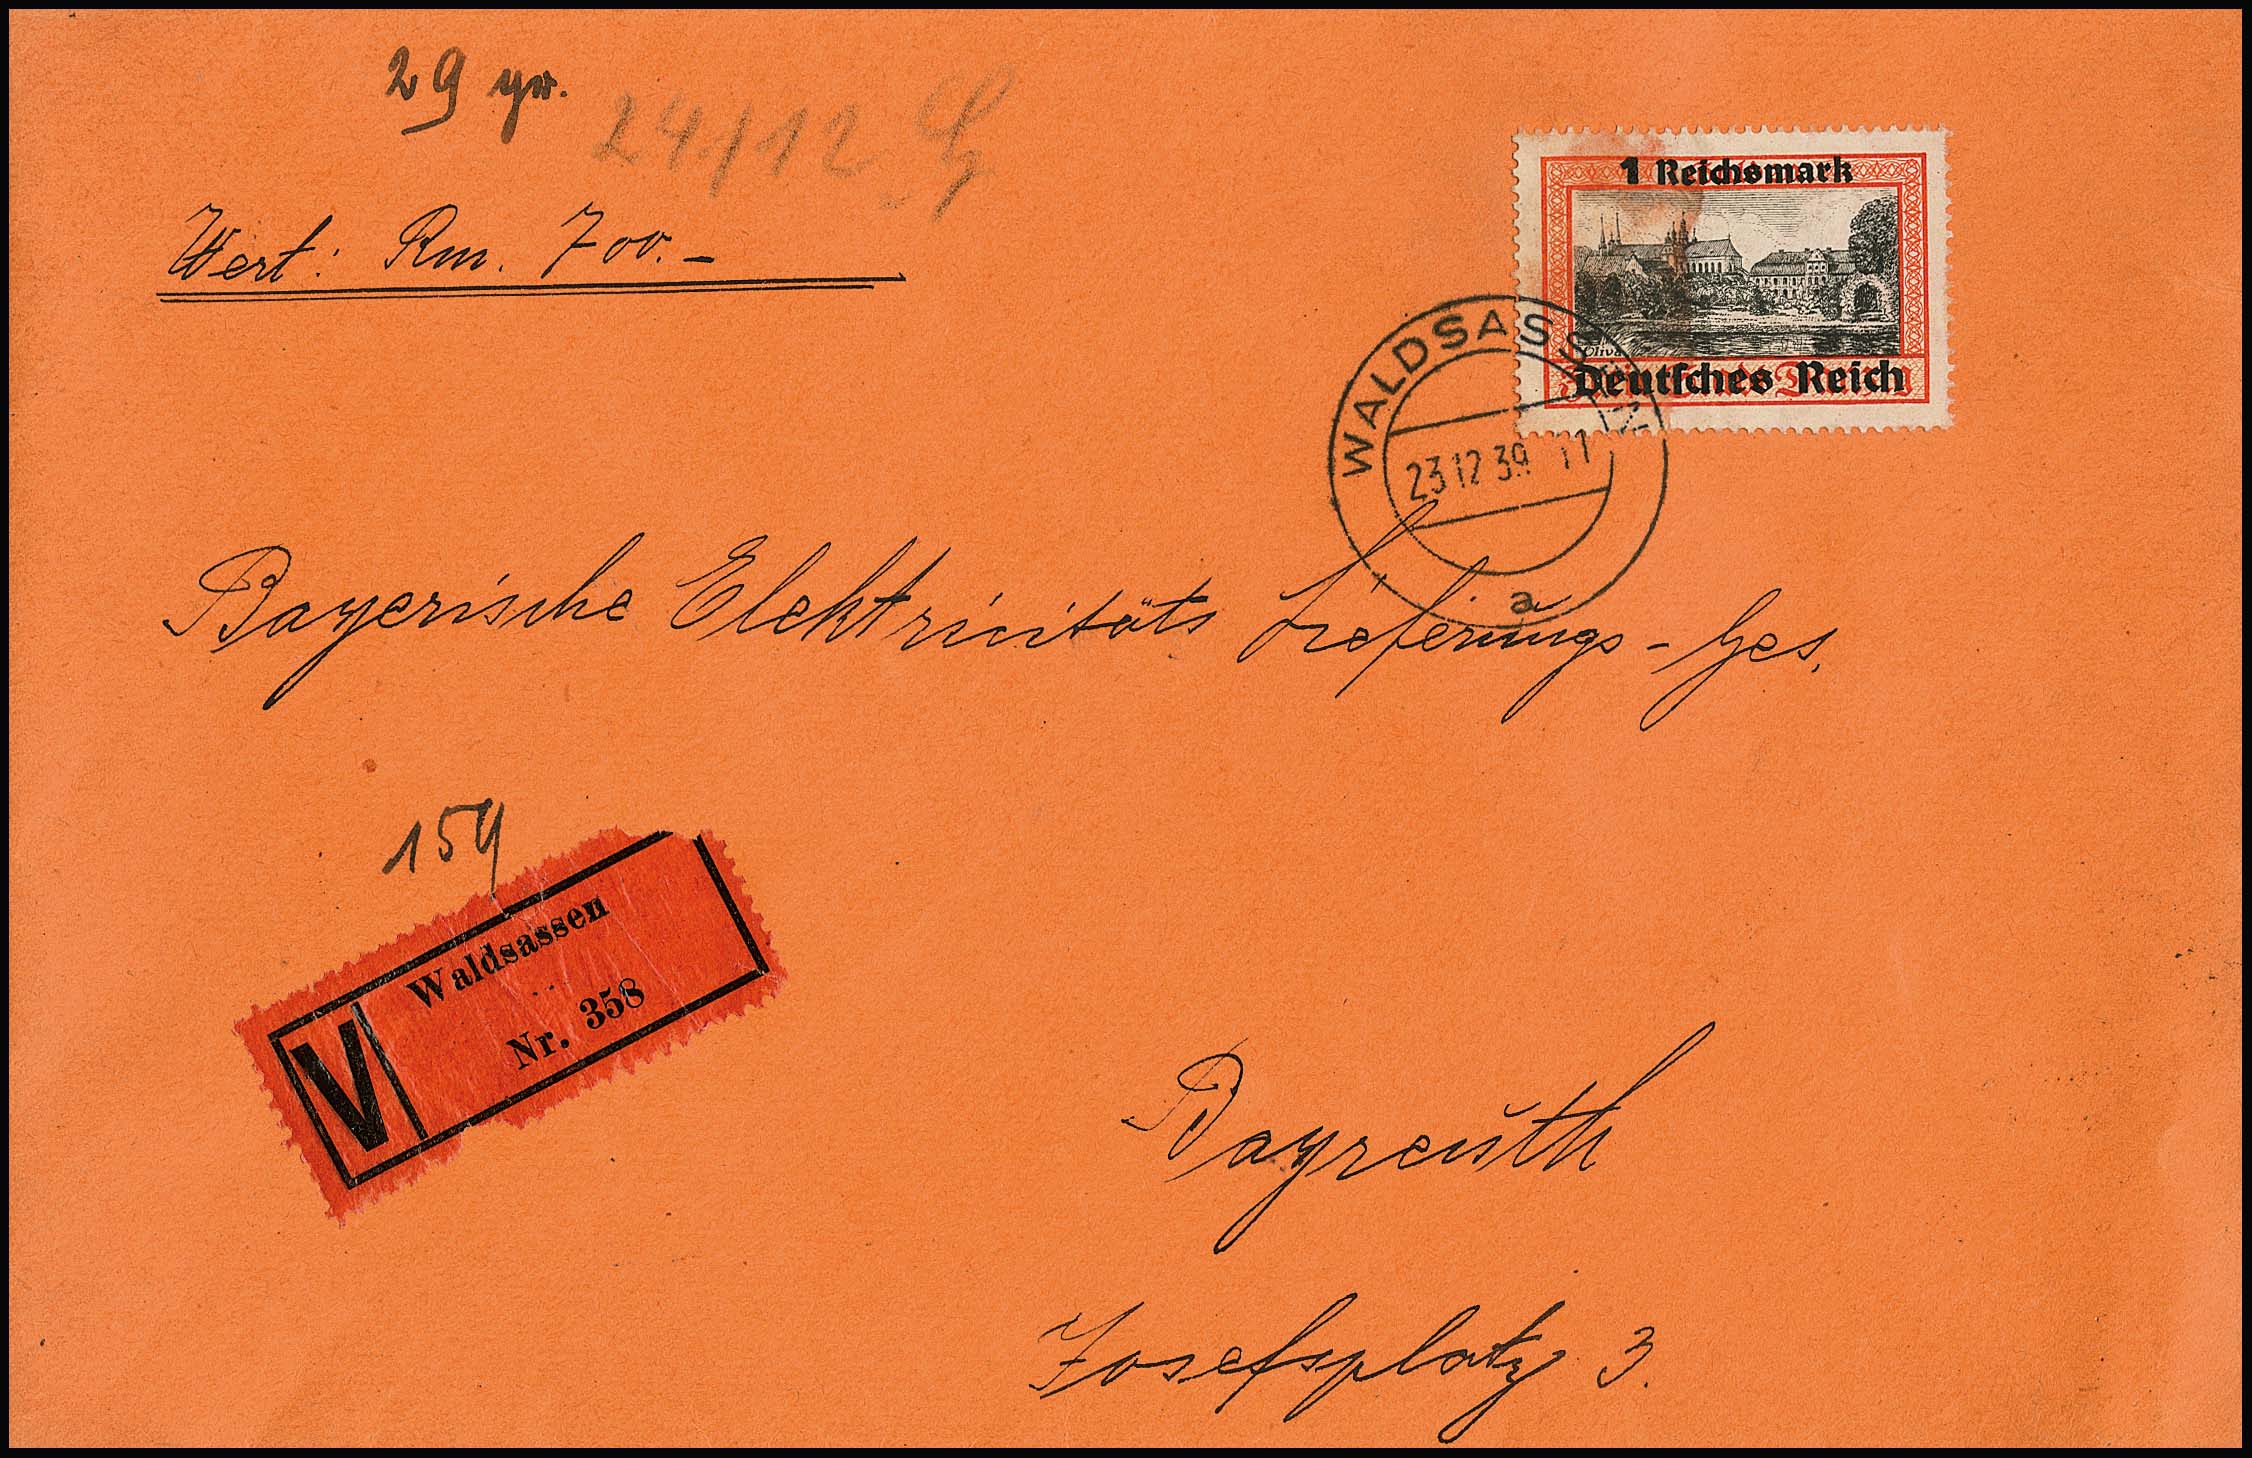 29 gr.
24/12
Wert: Rm. 700.-
1 Reichsmark
Oliva
Deutsches Reich
WALDSASSEN
23.12.39 11
a
Bayerische Elektricitäts Lieferungs-Ges.
159
V Waldsassen
Nr. 358
Bayreuth
Josefsplatz 3.